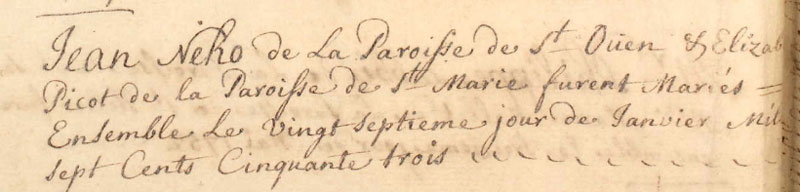 Jean Neho de La Paroisse de St Oüen & Elizab
Picot de la Paroisse de St Marie furent Mariés =
Ensemble Le Vingt Septieme jour de Janvier Mil
sept Cents Cinquante trois